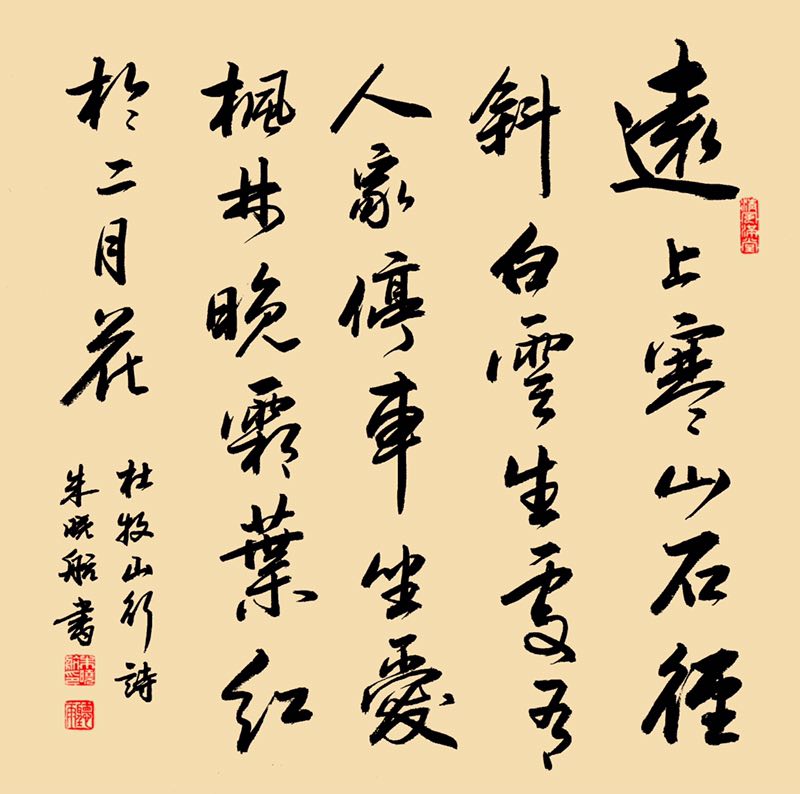 遠上寒山石徑
斜白雲生處有
人家停車坐愛
楓林晚霜葉紅
於二月花
杜牧山行詩
朱曉船書